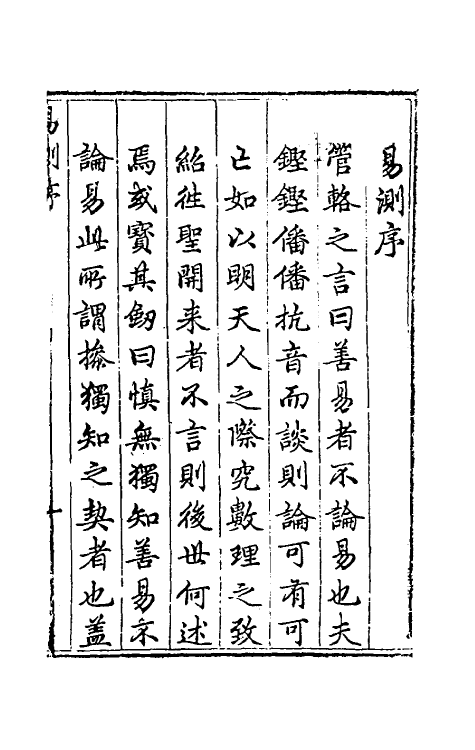 易測序
管輅之言曰善易者不論易也夫
鏗鏗僠僠抗音而談則論可有可
亡如以明天人之際究數理之致
紹徃聖開来者不言則後世何述
焉或寳其劔曰慎無獨知善易不
論易此所謂摻獨知之契者也盖
易測序
一